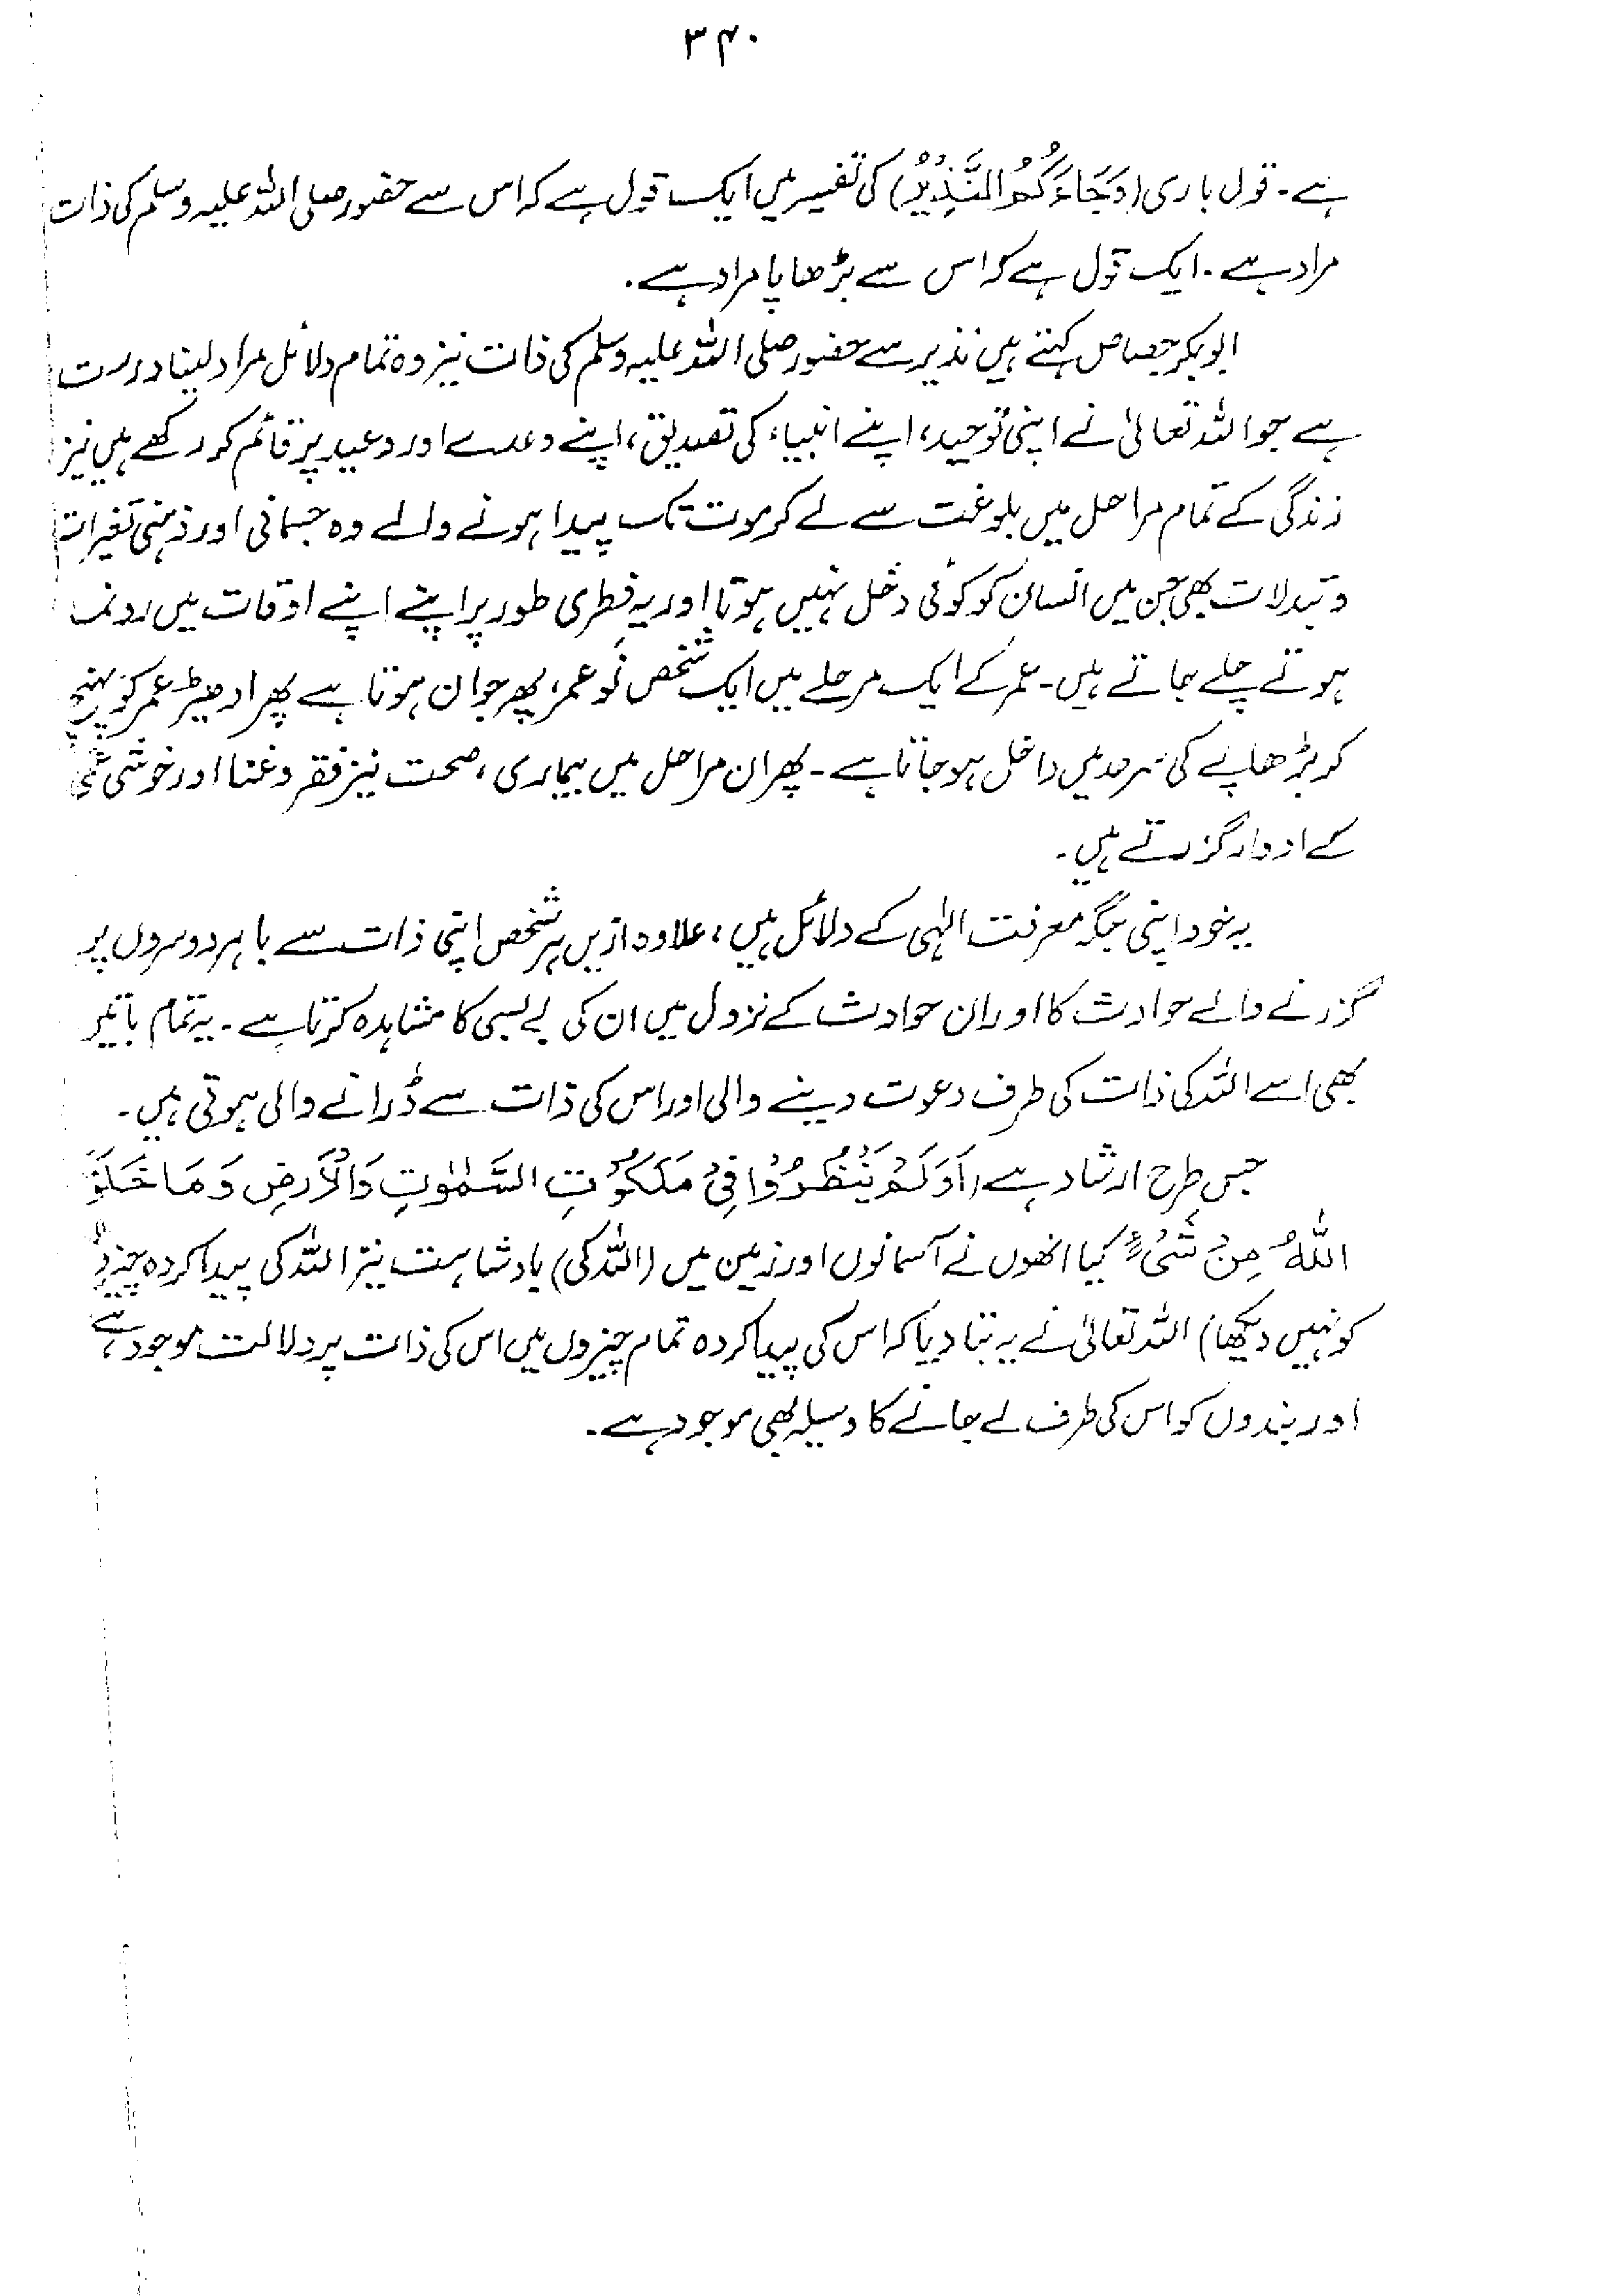 ۳۴۰
ہے۔ قول باری (وَجَاءَكُمُ النَّذِيْرُ) کی تفسیر میں ایک قول ہے کہ اس سے حضور صلی اللہ علیہ وسلم کی ذات
مراد ہے۔ ایک قول ہے کہ اس سے بڑھاپا مراد ہے۔
ابوبکر جصاص کہتے ہیں نذیر سے حضور صلی اللہ علیہ وسلم کی ذات نیز وہ تمام دلائل مراد لینا درست
ہے جو اللہ تعالیٰ نے اپنی توحید، اپنے انبیاء کی تصدیق، اپنے وعدے اور وعید پر قائم کر رکھے ہیں نیز
زندگی کے تمام مراحل میں بلوغت سے لے کر موت تک پیدا ہونے والے وہ جسمانی اور ذہنی تغیرات
و تبدلات بھی جن میں انسان کو کوئی دخل نہیں ہوتا اور یہ فطری طور پر اپنے اپنے اوقات میں رونما
ہوتے چلے جاتے ہیں۔ عمر کے ایک مرحلے میں ایک شخص نوعمر، پھر جوان ہوتا ہے پھر ادھیڑ عمر کو پہنچ
کر بڑھاپے کی سرحد میں داخل ہو جاتا ہے۔ پھر ان مراحل میں بیماری، صحت نیز فقر و غنا اور خوشی
کے ادوار گزرتے ہیں۔
یہ خود اپنی جگہ معرفت الٰہی کے دلائل ہیں، علاوہ ازیں ہر شخص اپنی ذات سے باہر دوسروں پر
گزرنے والے حوادث کا اور ان حوادث کے نزول میں ان کی بے بسی کا مشاہدہ کرتا ہے۔ یہ تمام باتیں
بھی اسے اللہ کی ذات کی طرف دعوت دینے والی اور اس کی ذات سے ڈرانے والی ہوتی ہیں۔
جس طرح ارشاد ہے (اَوَلَمْ يَنْظُرُوْا فِيْ مَلَكُوْتِ السَّمٰوٰتِ وَالْاَرْضِ وَمَا خَلَقَ
اللّٰهُ مِنْ شَيْءٍ کیا انھوں نے آسمانوں اور زمین میں (اللہ کی) بادشاہت نیز اللہ کی پیدا کردہ چیزوں
کو نہیں دیکھا) اللہ تعالیٰ نے یہ بتا دیا کہ اس کی پیدا کردہ تمام چیزوں میں اس کی ذات پر دلالت موجود ہے
اور بندوں کو اس کی طرف لے جانے کا وسیلہ بھی موجود ہے۔